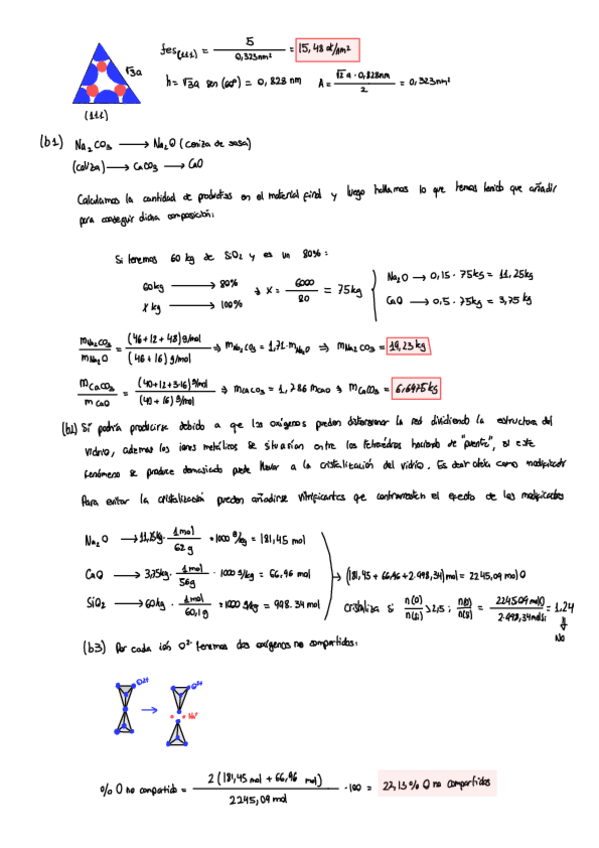 fes(111) = 5 / 0,323nm² = 15,48 at/nm²
√3a
h = √3a sen(60°) = 0,828 nm A = √2 a · 0,828nm / 2 = 0,323nm²
(111)
(b1) Na2CO3 → Na2O (ceniza de sosa)
(caliza) → CaCO3 → CaO
Calculamos la cantidad de productos en el material final y luego hallamos lo que hemos tenido que añadir
para conseguir dicha composición:
Si tenemos 60 kg de SiO2 y es un 80%:
60kg → 80%
x kg → 100%
→ x = 6000 / 80 = 75kg
Na2O → 0,15 · 75kg = 11,25kg
CaO → 0,5 · 75kg = 3,75 kg
mNa2CO3 / mNa2O = (46+12+48)g/mol / (46+16) g/mol ⇒ mNa2CO3 = 1,71·mNa2O ⇒ mNa2CO3 = 19,23kg
mCaCO3 / mCaO = (40+12+3·16)g/mol / (40+16) g/mol ⇒ mCaCO3 = 1,786 mCaO → mCaCO3 = 6,6975kg
(b2) Sí podría producirse debido a que los oxígenos pueden distorsionar la red dividiendo la estructura del
vidrio, además los iones metálicos se situarían entre los tetraedros haciendo de "puente", si este
fenómeno se produce demasiado puede llevar a la cristalización del vidrio. Es decir como modificador
Para evitar la cristalización pueden añadirse vitrificantes que contrarresten el efecto de los modificadores
Na2O → 11,25kg · 1mol / 62 g · 1000 g/kg = 181,45 mol
CaO → 3,75kg · 1mol / 56g · 1000 g/kg = 66,96 mol
SiO2 → 60kg · 1mol / 60,1g · 1000 g/kg = 998.34 mol
→ (181,45 + 66,96 + 2·998,34) mol = 2245,09 mol O
Cristaliza si n(O) / n(Si) > 2,5 ; n(O) / n(Si) = 2245,09 molO / 2·998,34 molSi = 1,24
No
(b3) Por cada ión O²⁻ tenemos dos oxígenos no compartidos:
Na⁺
% O no compartido = 2(181,45 mol + 66,96 mol) / 2245,09 mol · 100 = 22,13 % O no compartidos